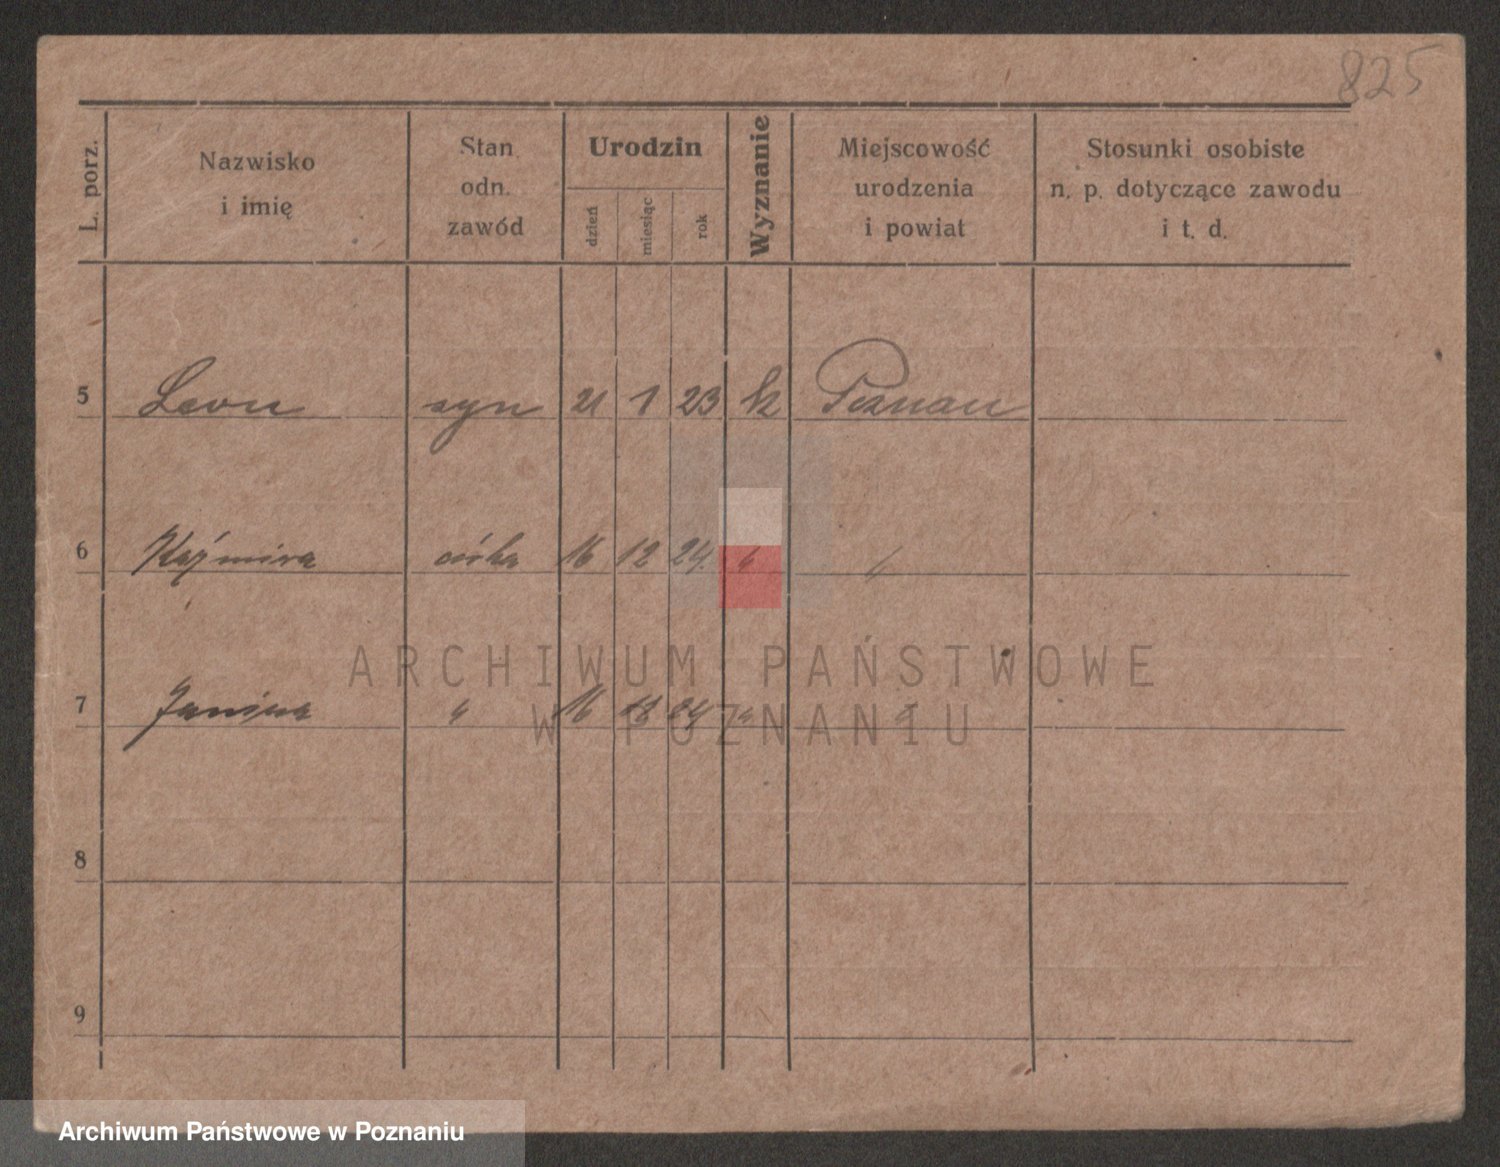 825
L. porz.
Nazwisko i imię
Stan odn. zawód
Urodzin
dzień
miesiąc
rok
Wyznanie
Miejscowość urodzenia i powiat
Stosunki osobiste n. p. dotyczące zawodu i t. d.
5 Leon syn 21 1 23 k Poznań
6 Kaźmira córka 16 12 24. " "
7 Janina " 16 12 24 " "
8
9
ARCHIWUM PAŃSTWOWE
W POZNANIU
Archiwum Państwowe w Poznaniu